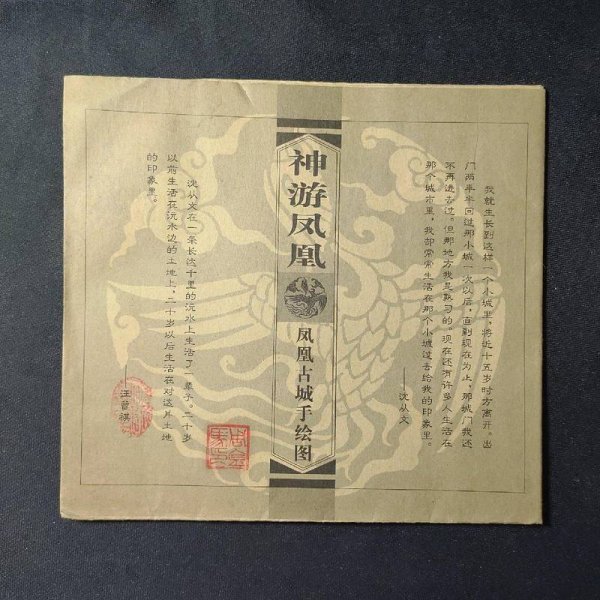 我就生长到这样一个小城里，将近十五岁时方离开。出
门两年半回过那小城一次以后，直到现在为止，那城门我还
不再进去过。但那地方我是熟习的。现在还有许多人生活在
那个城市里，我却常常生活在那个小城过去给我的印象里。
——沈从文
神游凤凰
凤凰古城手绘图
沈从文在一条长达千里的沅水上生活了一辈子，二十岁
以前生活在沅水边的土地上，二十岁以后生活在对这片土地
的印象里。
——汪曾祺